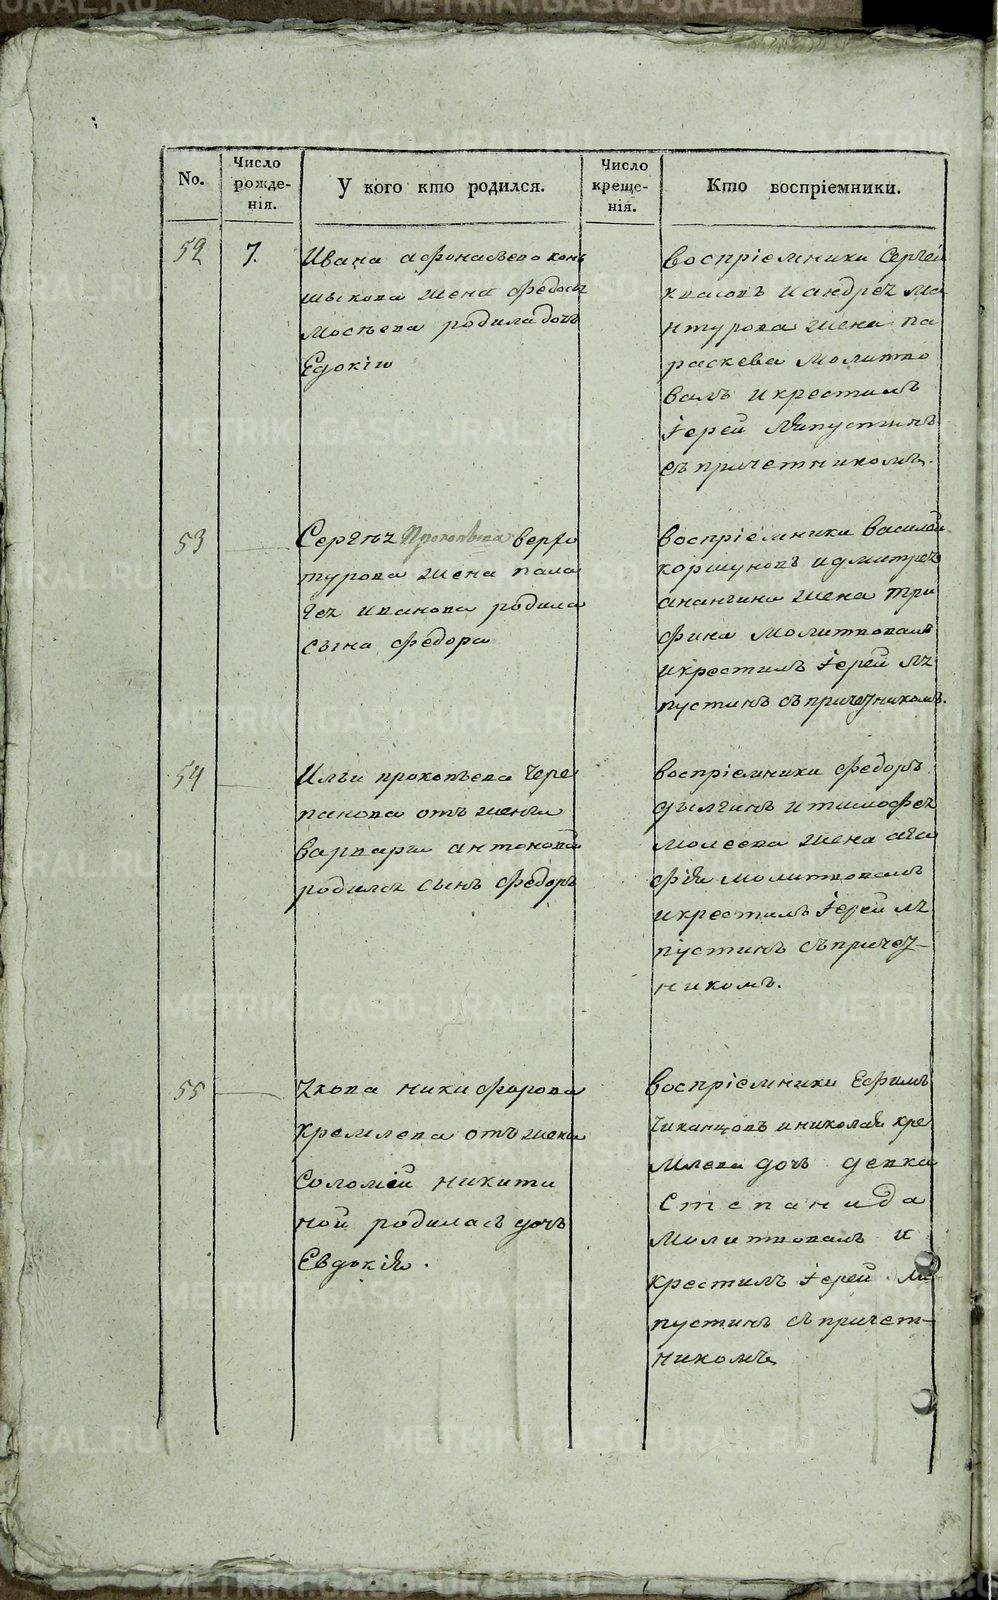 No.
Число рожде-нія.
У кого кто родился.
Число креще-нія.
Кто воспріемники.
52
7.
Ивана афонасьева кон
шыкова жена федось
Мосѣева родила дочь
Едокію
воспріемники Сергей
квасовъ и андрея ма
нтурова жена па
раскева молитво
валъ и крестилъ
іерей Ляпустинъ
съ причетникомъ.
53
Сергѣя Прокопьева верхо
турова жена пала
гея иванова родила
сына федора
воспріемники василей
коршуновъ и дмитрея
ананьина жена три
фина молитвовалъ
и крестилъ іерей ля
пустинъ съ причетникомъ.
54
Ильи прокопьева чере
панова отъ жены
варвары антоновой
родился сынъ федоръ
воспріемники федоръ
и тимофея
моисеева жена ага
фія молитвовалъ
и крестилъ іерей ля
пустинъ съ причет-
никомъ.
55
Якова никифорова
кремлева отъ жены
Соломіи никити
ной родилась дочь
Евдокія.
воспріемники Ефимъ
и николая кре
млева дочь девка
степанида
молитвовалъ и
крестилъ іерей ля
пустинъ съ причет-
никомъ
METRIKI.GASO-URAL.RU